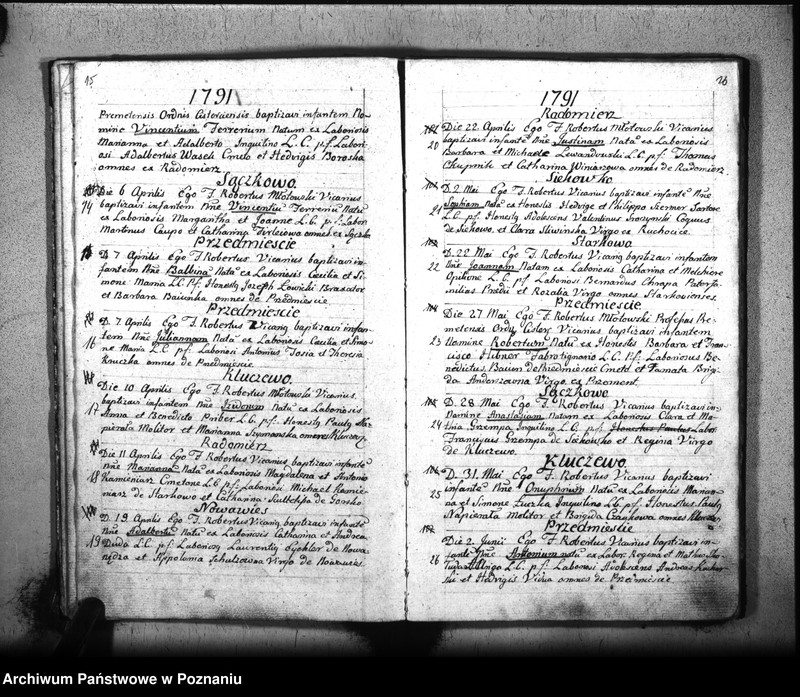 15
1791
Premetensis Ordinis Cisterciensis baptizavi infantem No-
mine Vincentium Ferrerium Natum ex Laboriosis
Marianna et Adalberto Inquilino L. C. p.f. Labori-
osi Adalbertus Wasek Cmeto et Hedvigis Boroska
omnes ex Radomierz
Sączkowo
Die 6 Aprilis Ego F. Robertus Młotowski Vicarius
14 baptizavi infantem Nne Vincentiu Ferreriu Natu
ex Laboriosis Margaritha et Joanne L.C. p.f. Labor
Martinus Caupo et Catharina omnes ex Sączko
Przedmiescie
D. 7 Aprilis Ego F. Robertus Vicarius baptizavi in-
fantem Nne Balbina Nata ex Laboriosis Cæcilia et Si-
mone Mania L.C. p.f. Honesty Jozeph Łowicki Braxator
et Barbara omnes de Przedmiescie
Przedmiescie
D. 7 Aprilis Ego F. Robertus Vicariq baptizavi infan-
16 tem Nne Juliannam Nata ex Laboriosis Cæcilia et Simo-
ne Mania L.C. p.f. Laboriosi Antonius Tosia et Theresia
Kruczka omnes de Przedmiescie
Kluczewo
Die 10 Aprilis Ego F. Robertus Młotowski Vicarius
baptizavi infantem Nne Izidorum Natu ex Laboriosis
17 Anna et Benedicto Priber L.C. p.f. Honesty Pauly Na-
pierała Molitor et Marianna Szymanska omnes Kluczew
Radomierz
Die 11 Aprilis Ego F. Robertus Vicarius baptizavi infante
Nne Marianna Nata ex Laboriosis Magdalena et Antonio
18 Kamieniarz Cmetone L.C p.f. Laboriosi Michael Kamie-
niarz de Starkowo et Catharina de Gorsko
Nowawies
D. 19 Aprilis Ego F. Robertus Vicariq baptizavi infante
Nne Adalbertu Natu ex Laboriosis Catharina et Andrea
19 Duda L.C. p.f. Laboriosy Laurentiq de Nowa
et Appolonia Virgo de Nowawies
26
1791
Radomierz
Die 22 Aprilis Ego F. Robertus Młotowski Vicarius
20 baptizavi infante Nne Justinam Nata ex Laboriosis
Barbara et Michaele Lewandowski L.C p.f. Thomas
et Catharina Winiarzowa omnes de Radomierz
Siekowko
D. 2 Mai Ego F. Robertus Vicarius baptizavi infante Nne
21 ex Honestis Hedvige et Philippo Siermer Sartore
L.C p.f. Honesty Adolescens Valentinus Coquus
de Siekowo, et Clara Sliwinska Virgo ex Ruchocice
Starkowo
D. 22 Mai Ego F. Robertus Vicariq baptizavi infantem
22 Nne Joannam Natam ex Laboriosis Catharina et Melchiore
Opilione L.C. p.f Laboriosi Bernardus Chrapa Paterfa-
milias et Rozalia Virgo omnes Starkoviensis
Przedmiescie
Die. 27 Mai Ego F. Robertus Młotowski Professus Pre-
metensis Ordis Cisters. Vicarius baptizavi infantem
23 Nomine Robertum Natu ex Honestis Barbara et Fran-
cisco Hübner Fabrotignario L.C. P.f. Laboriosus Be-
nedictus Baum de Przedmiescie Cmeto et Famata Brigi-
da Anderszowna Virgo ex Przemeot
Sączkowo
D. 28 Mai Ego F. Robertus Vicarius baptizavi in-
Nomine Anastasiam Natam ex Laboriosis Clara et Ma-
24 thia Grzempa Inquilino L.C. p.f. Honestus Paulus Labor.
Françiscus Grzempa de Siekowko et Regina Virgo
de Kluczewo.
Kluczewo
D. 31. Mai Ego F. Robertus Vicarius baptizavi
25 infante Nne Onuphrium Natu ex Laboriosis Marian-
na et Simone Zuczka Inquilino L.C. p.f. Honestus Pauly
Napierała Molitor et Brigida Czaykowa omnes Kluczew
Przedmiescie
Die 2. Junii Ego F. Robertus Vicarius baptizavi in-
26 fante Nne Antonium natu ex Labor. Regina et Mathia
L.C. p.f. Laboriosi Adolescens Andreas
et Hedvigis Vidua omnes de Przedmiescie
Archiwum Państwowe w Poznaniu